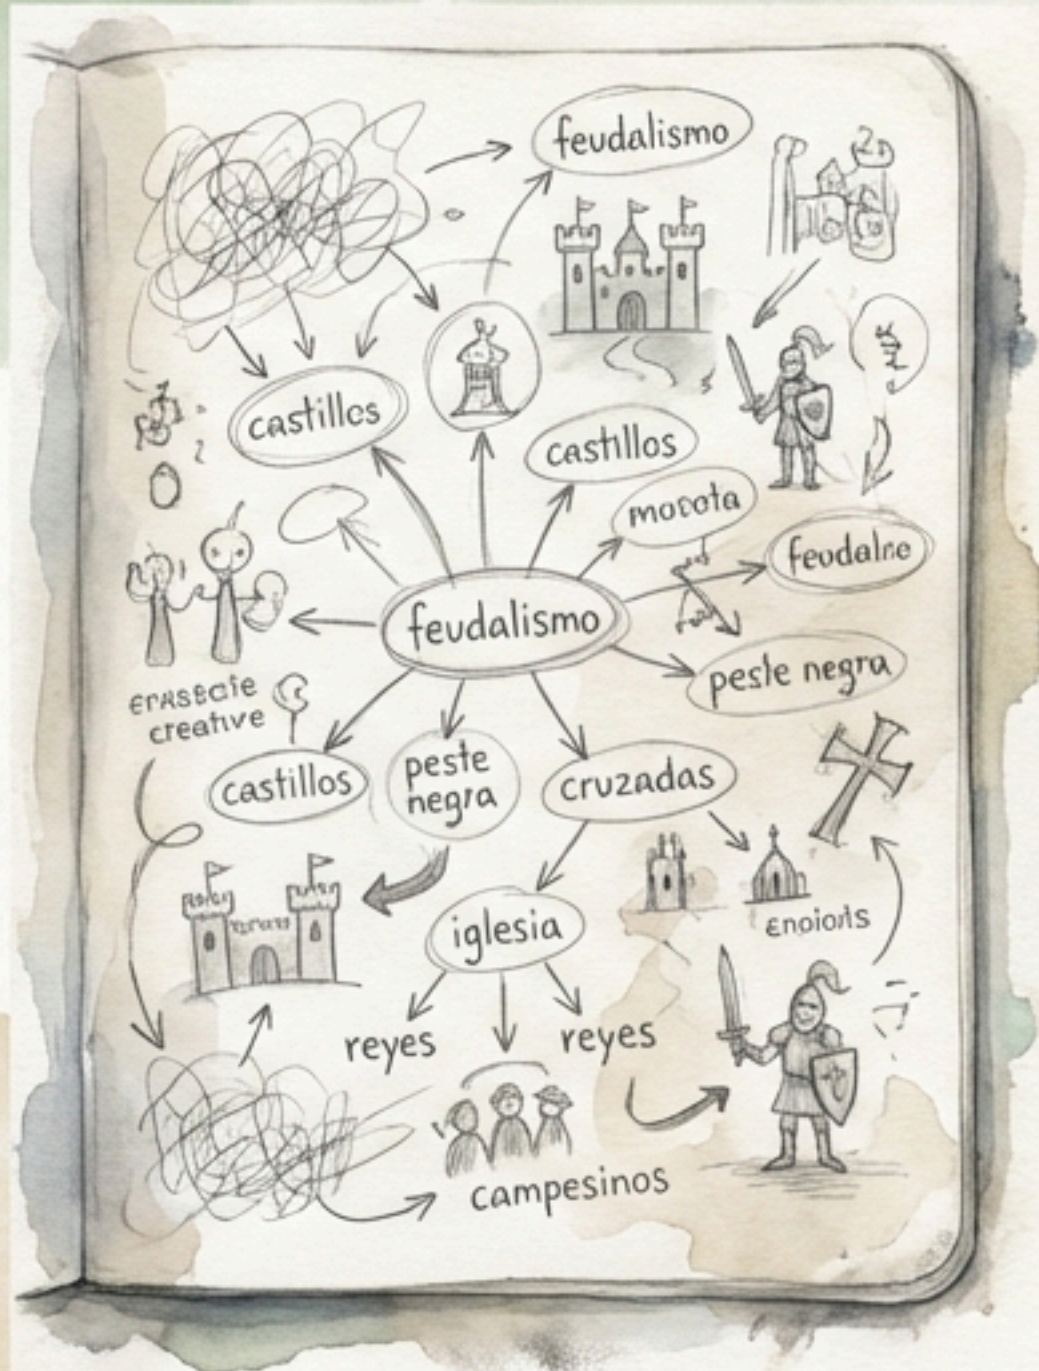 feudalismo
castilles
castillos
mocota
feudalne
feudalismo
peste negra
creative
castillos
peste
negra
cruzadas
iglesia
reyes
reyes
campesinos